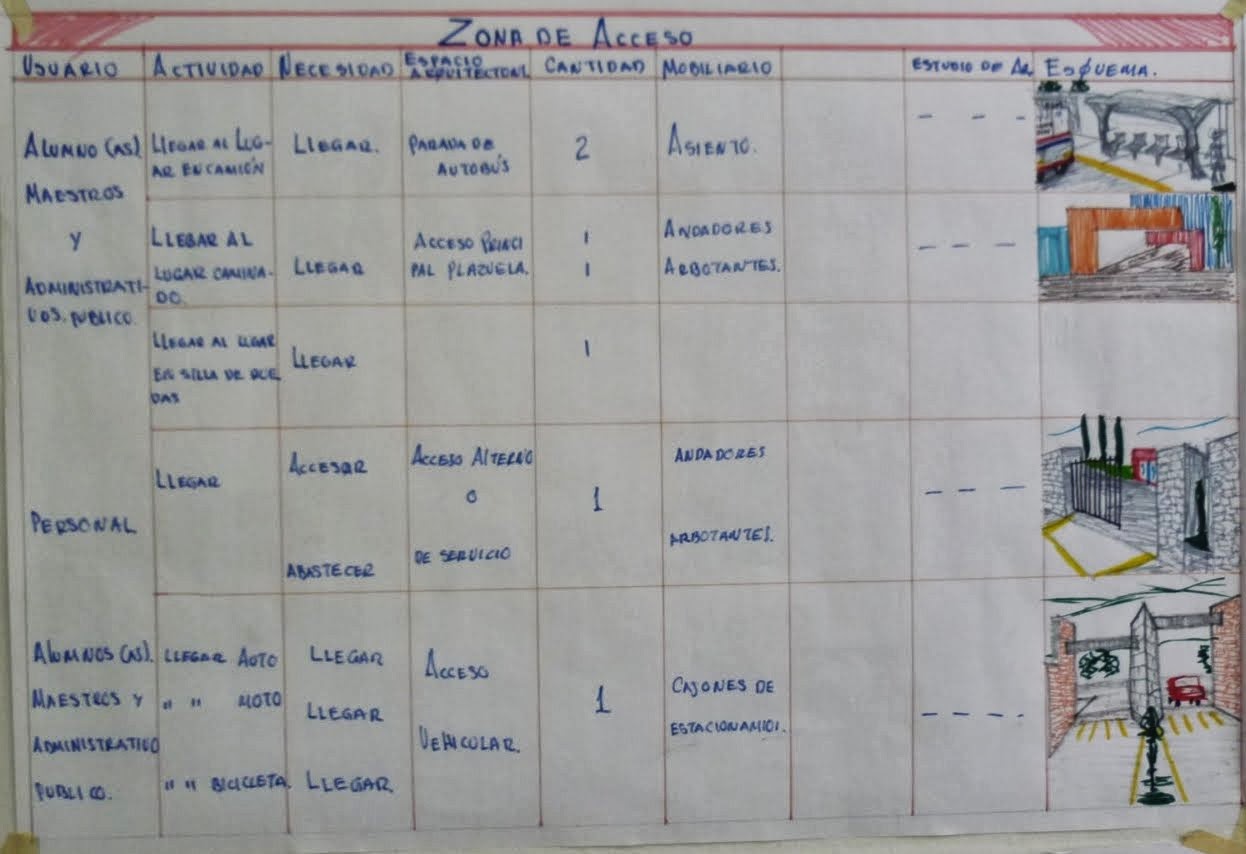 ZONA DE ACCESO
USUARIO ACTIVIDAD NECESIDAD ESPACIO ARQUITECTONI. CANTIDAD MOBILIARIO ESTUDIO DE AR. ESQUEMA.
ALUMNO (AS).
MAESTROS
Y
ADMINISTRATI-
VOS. PUBLICO.
LLEGAR AL LUG-
AR EN CAMIÓN
LLEGAR.
PARADA DE
AUTOBÚS
2
ASIENTO.
LLEGAR AL
LUGAR CAMINA-
DO.
LLEGAR
ACCESO PRINCI
PAL PLAZUELA.
1
1
ANDADORES
ARBOTANTES.
LLEGAR AL LUGAR
EN SILLA DE RUE
DAS
LLEGAR
1
PERSONAL
LLEGAR
ACCESAR
ABASTECER
ACCESO ALTERNO
O
DE SERVICIO
1
ANDADORES
ARBOTANTES.
ALUMNOS (AS).
MAESTROS Y
ADMINISTRATIVO
PUBLICO.
LLEGAR AUTO
" " MOTO
" " BICICLETA.
LLEGAR
LLEGAR
LLEGAR.
ACCESO
VEHICULAR.
1
CAJONES DE
ESTACIONAMIOI.